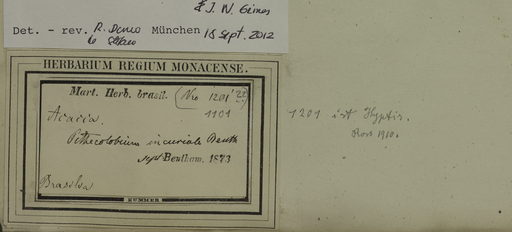 & J. W. Grimes
Det. - rev. R. Dono München 18 Sept. 2012
HERBARIUM REGIUM MONACENSE.
Mart. Herb. brasil. (Nro 1201
1101
Acacia.
Pithecolobium incuriale Benth
Bentham. 1873
Brasilia
KUMMER.
1201 ist Hyptis.
Ross 1910.